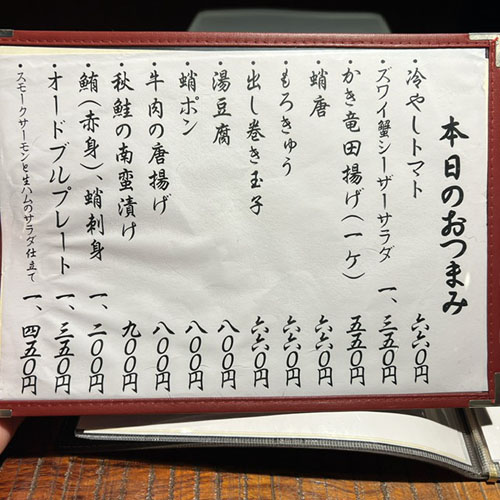 本日のおつまみ
・冷やしトマト 六六〇円
・ズワイ蟹シーザーサラダ 一、三五〇円
・かき竜田揚げ(一ケ) 五五〇円
・蛸唐 六六〇円
・もろきゅう 六六〇円
・出し巻き玉子 六六〇円
・湯豆腐 八〇〇円
・蛸ポン 八〇〇円
・牛肉の唐揚げ 八〇〇円
・秋鮭の南蛮漬け 九〇〇円
・鮪(赤身)、蛸刺身 一、二〇〇円
・オードブルプレート 一、三五〇円
・スモークサーモンと生ハムのサラダ仕立て 一、四五〇円